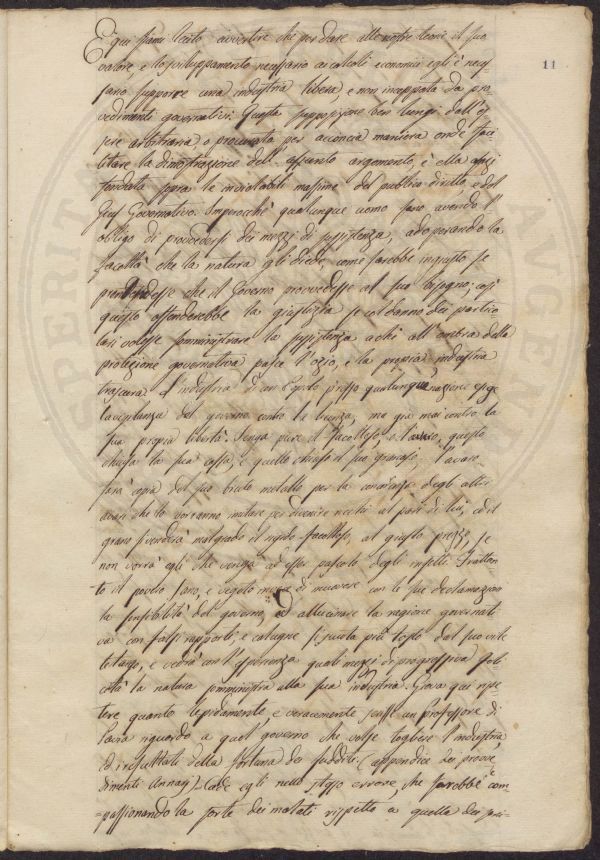 11
E qui siami lecito avvertire che per dare alle nostre teorie il suo
valore, e lo sviluppamento necessario ai calcoli economici egli è neces-
sario supporre una industria libera, e non inceppata da pro-
vedimenti governativi. Questa supposizione ben lungi dall'es-
sere arbitraria o procurata per acconcia maniera onde faci-
litare la dimostrazione dell'assunto argomento, è ella anzi
fondata sopra le inviolabili massime del pubblico diritto, e del
Jus Governativo. Imperocchè qualunque uomo sano avendo l'
obbligo di provvedersi dei mezzi di sussistenza, adoperando la
facoltà che la natura gli diede, come sarebbe ingiusto se
pretendesse che il Governo provvedesse al suo bisogno; così
questo offenderebbe la giustizia se col danno dei partico-
lari volesse somministrare la sussistenza a chi all'ombra della
protezione governativa pasce l'ozio, e la propria industria
trascura. L'industria di un Popolo presso qualunque nazione esige
la vigilanza del governo contro la licenza, ma già mai contro la
sua propria libertà. Tenga pure il facoltoso, e l'avaro, questo
chiusa la sua cassa, e quello chiuso il suo granajo; l'avaro
farà copia del suo metallo per la degli altri
avari che lo vorranno imitare per divenire ricchi al pari di lui, ed il
grano si venderà malgrado il rigido facoltoso, al giusto prezzo, se
non vorrà egli che venga ad esser pascolo degli insetti. Frattan-
to il povero sano, e vegeto invece di muovere con le sue declamazioni
la sensibilità del governo, ed allucinare la ragione governati-
va con falsi rapporti, e calugne si scuota più tosto dal suo vile
letargo, e vedrà con l'esperienza quali mezzi di progressiva feli-
cità la natura somministra alla sua industria. Giova qui ripe-
tere quanto lepidamente, e veracemente scrisse un Professore di
Pavia riguardo a quel governo che volse togliere l'industria
ed i risultati della fortuna dei sudditi. (appendice dei prove-
dimenti Annari) Cade egli nello stesso errore, che sarebbe com-
passionando la sorte dei malati rispetto a quella dei